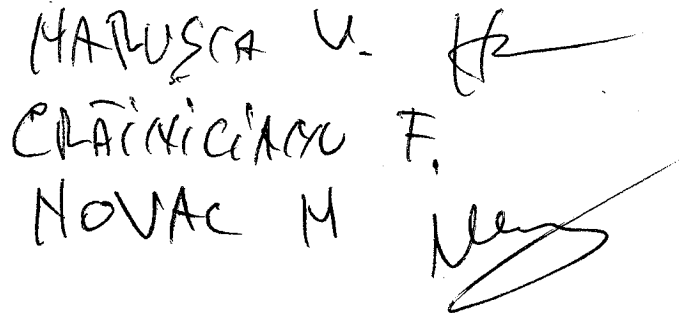 MARUȘCA V.
CRĂINICIANU F.
NOVAC M